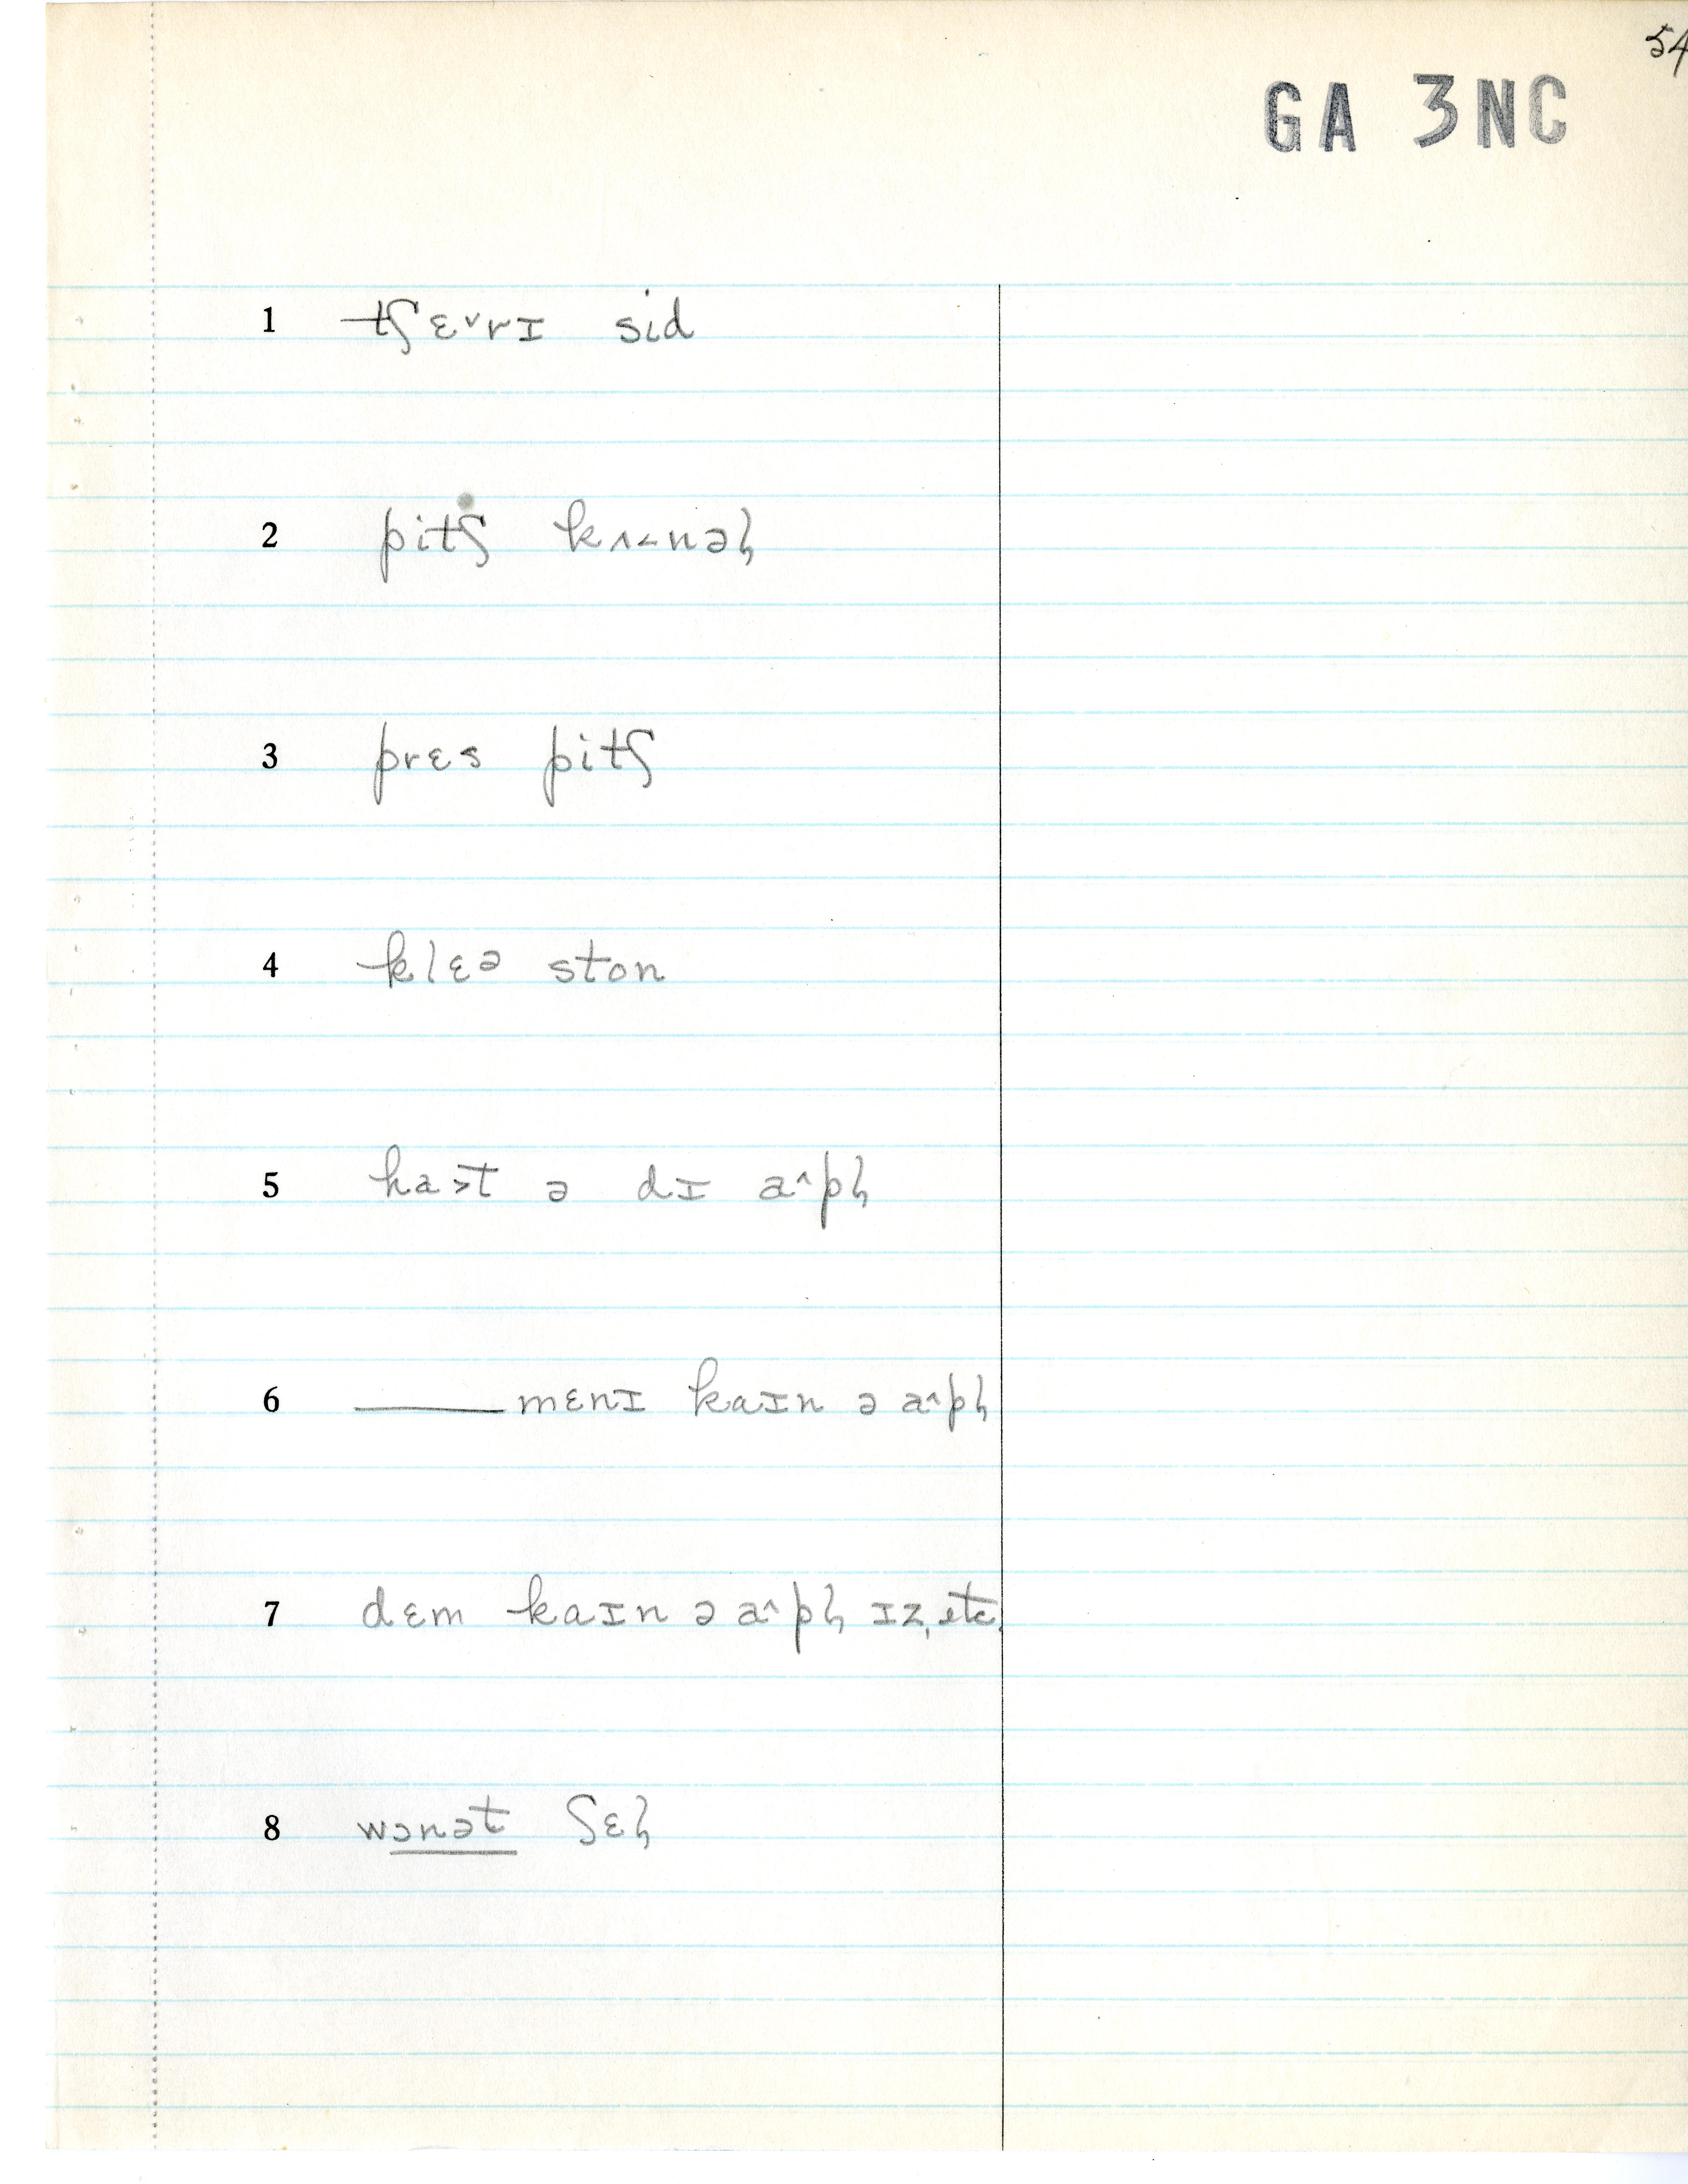 54
GA 3NC
1 tʃɛ˅rɪ sid
2 pitʃ kʌ˂nəɫ
3 prɛs pitʃ
4 klɛə ston
5 ha˃t ə dɪ a˄pɫ
6 ——— mɛnɪ kaɪn ə a˄pɫ
7 dɛm kaɪn ə a˄pɫ ɪz, etc.
8 wɔnət ʃɛɫ